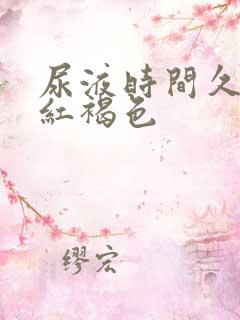 尿液時間久
紅褐色
缪宏